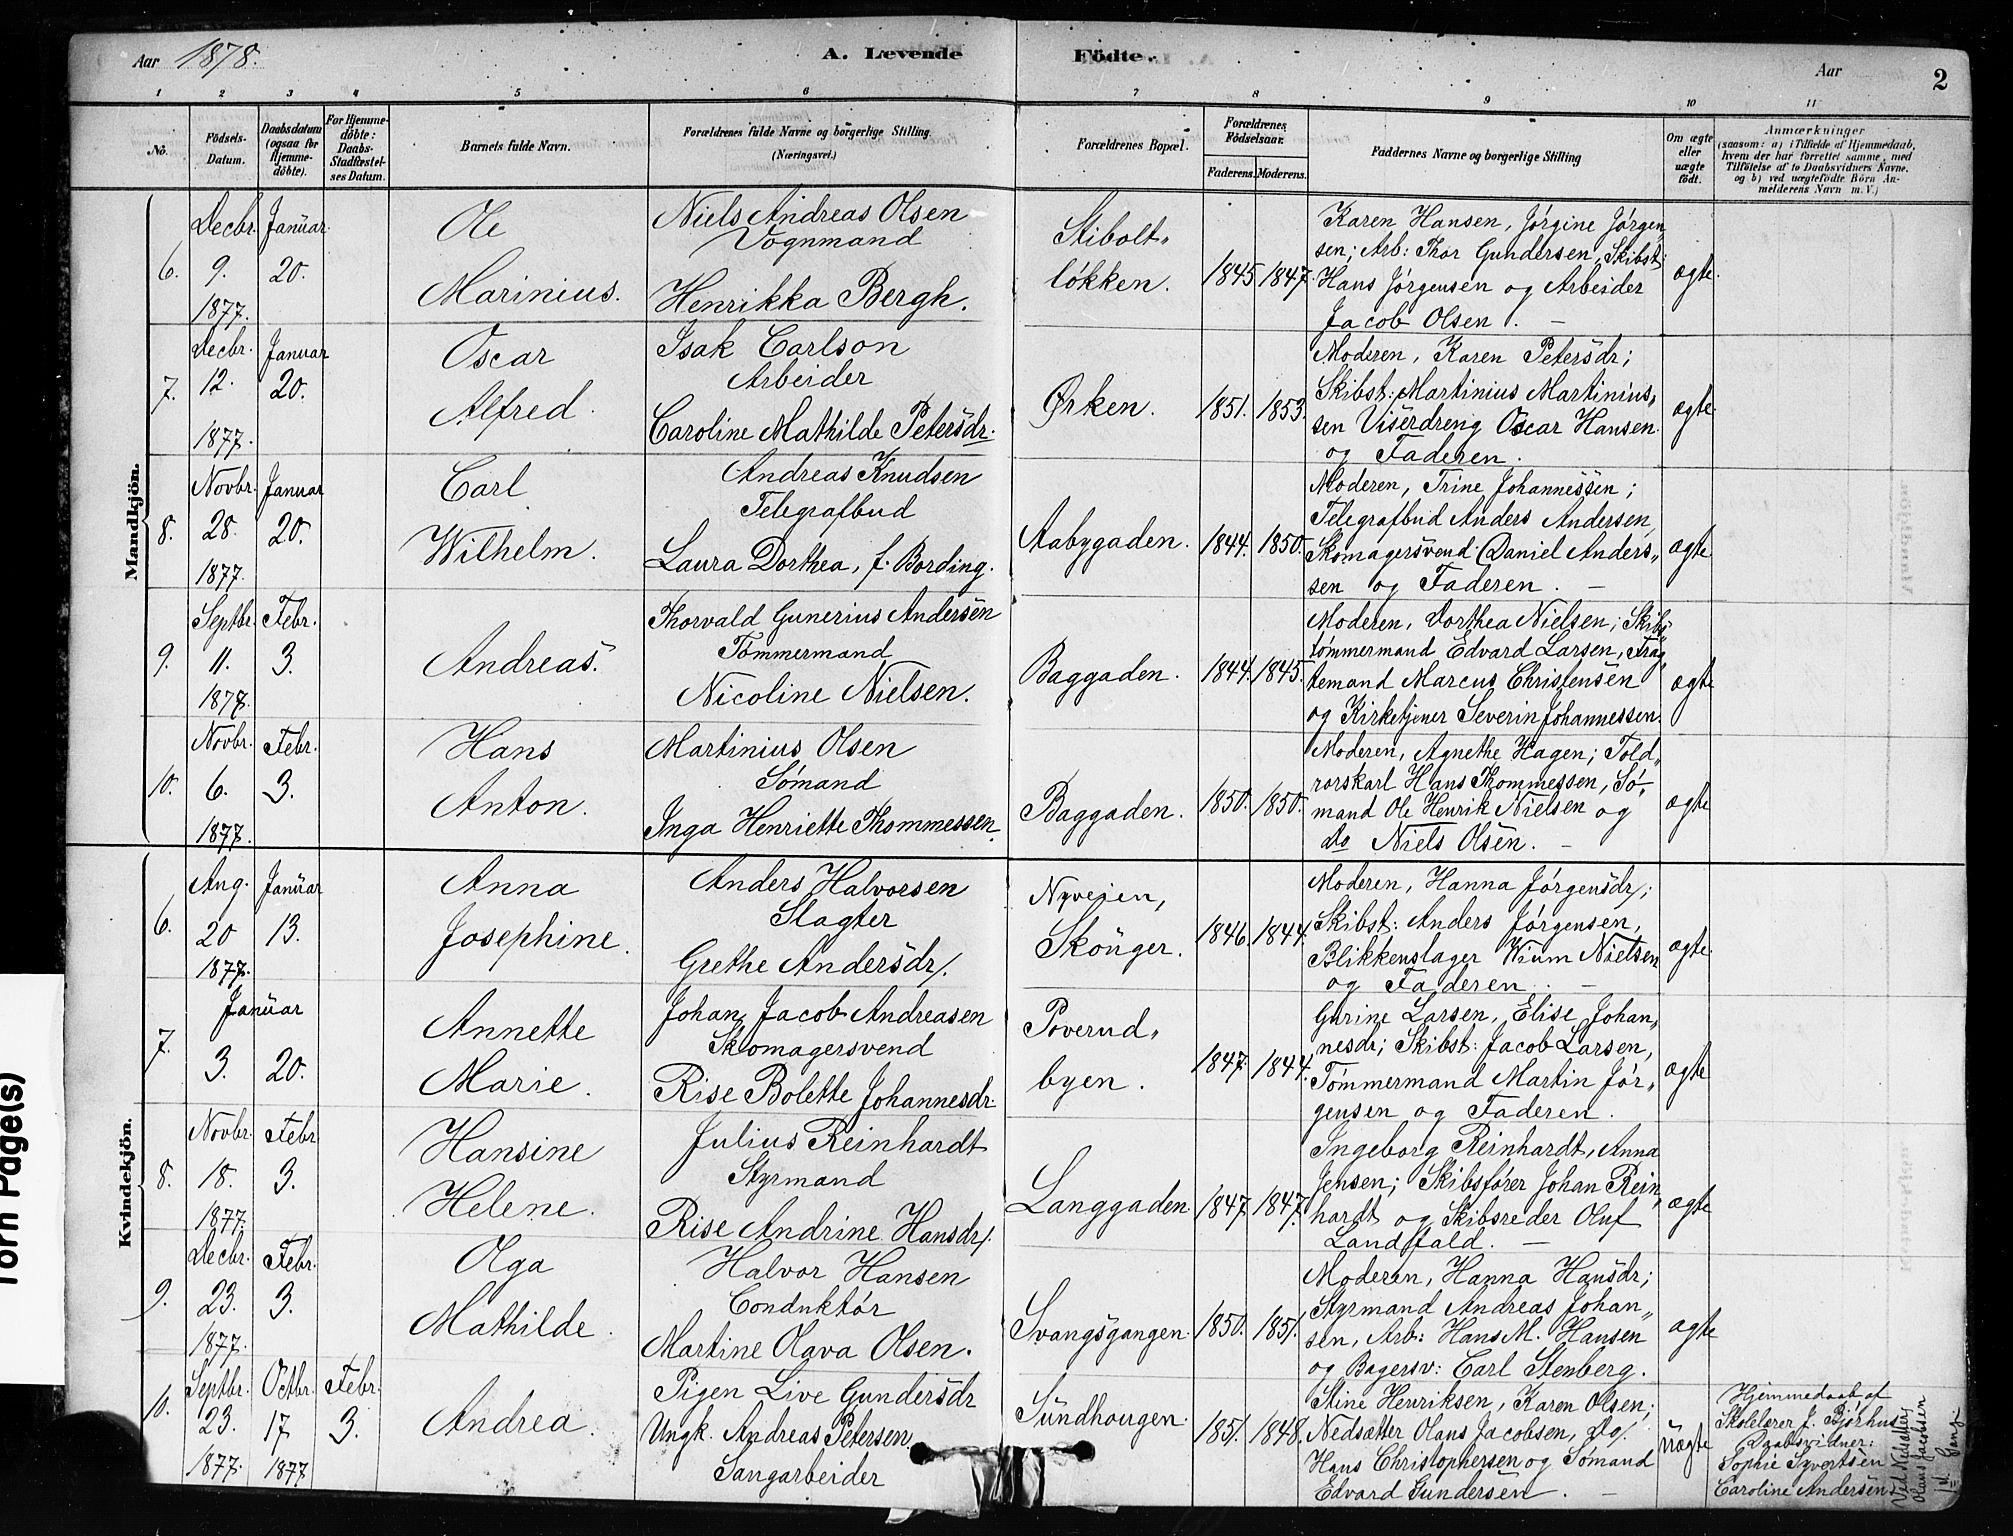 Aar 1878.
A. Levende Födte.
Aar
2
1 2 3 4 5 6 7 8 9 10 11
No.
Födsels-Datum.
Daabsdatum (ogsaa for Hjemme-döbte).
For Hjemme-döbte: Daabs-Stadfæstel-ses Datum.
Barnets fulde Navn.
Forældrenes fulde Navne og borgerlige Stilling (Næringsvei.)
Forældrenes Bopæl.
Forældrenes Födselsaar.
Faderens. Moderens.
Faddernes Navne og borgerlige Stilling
Om ægte eller uægte födt.
Anmærkninger
(saasom: a) i Tilfælde af Hjemmedaab,
hvem der har forrettet samme, med
Tilföielse af to Daabsvidners Navne.
og b) ved uægtefödte Börn An-
melderens Navn m. V.)
Mandkjön.
6.
Decbr. 9. 1877.
Januar 20.
Ole
Marinius.
Niels Andreas Olsen
Vognmand
Henrikka Bergh.
Stibolt„
løkken.
1845 1847.
Karen Hansen, Jørgine Jørgen„
sen; Arb: Thor Gundersen, Skibst:
Hans Jørgensen og Arbeider
Jacob Olsen. –
ægte.
7.
Decbr. 12. 1877.
Januar 20.
Oscar
Alfred.
Isak Carlson
Arbeider
Caroline Mathilde Petersdr.
Ørken.
1851. 1853.
Moderen, Karen Petersdr;
Skibst: Martinius Martinius„
sen Viserdreng Oscar Hansen
og Faderen.
ægte.
8.
Novbr. 28. 1877.
Januar 20.
Carl
Wilhelm.
Andreas Knudsen
Telegrafbud
Laura Dorthea, f. Bording.
Aabygaden.
1844. 1850.
Moderen, Trine Johannessen;
Telegrafbud Anders Andersen,
Skomagersvend Daniel Anders„
sen og Faderen. –
ægte
9.
Septbr. 11. 1878.
Febr. 3.
Andreas.
Thorvald Gunerius Andersen
Tømmermand
Nicoline Nielsen.
Baggaden.
1844. 1845.
Moderen, Dorthea Nielsen; Skibs„
tømmermand Edvard Larsen, Frag„
temand Marcus Christensen
og Kirketjener Severin Johannessen.
ægte
10.
Novbr. 6. 1877.
Febr. 3.
Hans
Anton.
Martinius Olsen
Sømand
Inga Henriette Thommessen.
Baggaden.
1850. 1850.
Moderen, Agnethe Hagen; Told„
rorskarl Hans Thommessen, Sø„
mand Ole Henrik Nielsen og
do Niels Olsen. –
ægte
Kvindekjön.
6.
Aug. 20 1877.
Januar 13.
Anna
Josephine.
Anders Halvorsen
Slagter
Grethe Andersdr.
Nyveien,
Skouger.
1846. 1844.
Moderen, Hanna Jørgensdr;
Skibst: Anders Jørgensen,
Blikkenslager Wium Nielsen
og Faderen. –
ægte.
7.
Januar
3. 20.
Annette
Marie.
Johan Jacob Andreasen
Skomagersvend
Rise Bolette Johannesdr.
Poverud„
byen.
1847. 1844.
Gurine Larsen, Elise Johan„
nesdr; Skibst: Jacob Larsen,
Tømmermand Martin Jør„
gensen og Faderen.
ægte
8.
Novbr. 18. 1877.
Febr. 3.
Hansine
Helene.
Julius Reinhardt
Styrmand
Rise Andrine Hansdr.
Langgaden.
1847 1847.
Ingeborg Reinhardt, Anna
Jensen; Skibsfører Johan Rein„
hardt og Skibsreder Oluf
Landfald. –
ægte
9.
Decbr. 23. 1877.
Febr. 3.
Olga
Mathilde.
Halvor Hansen
Conduktør
Martine Olava Olsen.
Svangsgangen.
1850. 1851.
Moderen, Hanna Hansdr;
Styrmand Andreas Johan„
sen, Arb: Hans M. Hansen
og Bagersv: Carl Stenberg.
ægte
10.
Septbr. 23. 1877.
Octbr. 17 1877
Febr. 3.
Andrea.
Pigen Live Gundersdr
Ungk. Andreas Petersen
Sangarbeider
Sundhougen.
1851. 1848.
Stine Henriksen, Karen Olsen;
Nedsætter Olaus Jacobsen, Do.
Hans Christophersen og Sømand
Edvard Gundersen. –
uægte
Hjemmedaab af
Skolelærer J. Bjørhus
Daabsvidner:
Sophie Syvertsen
Caroline Andersen
Ved Nedsætter
Olaus Jacobsen
1ste Gang
Torn Page(s)